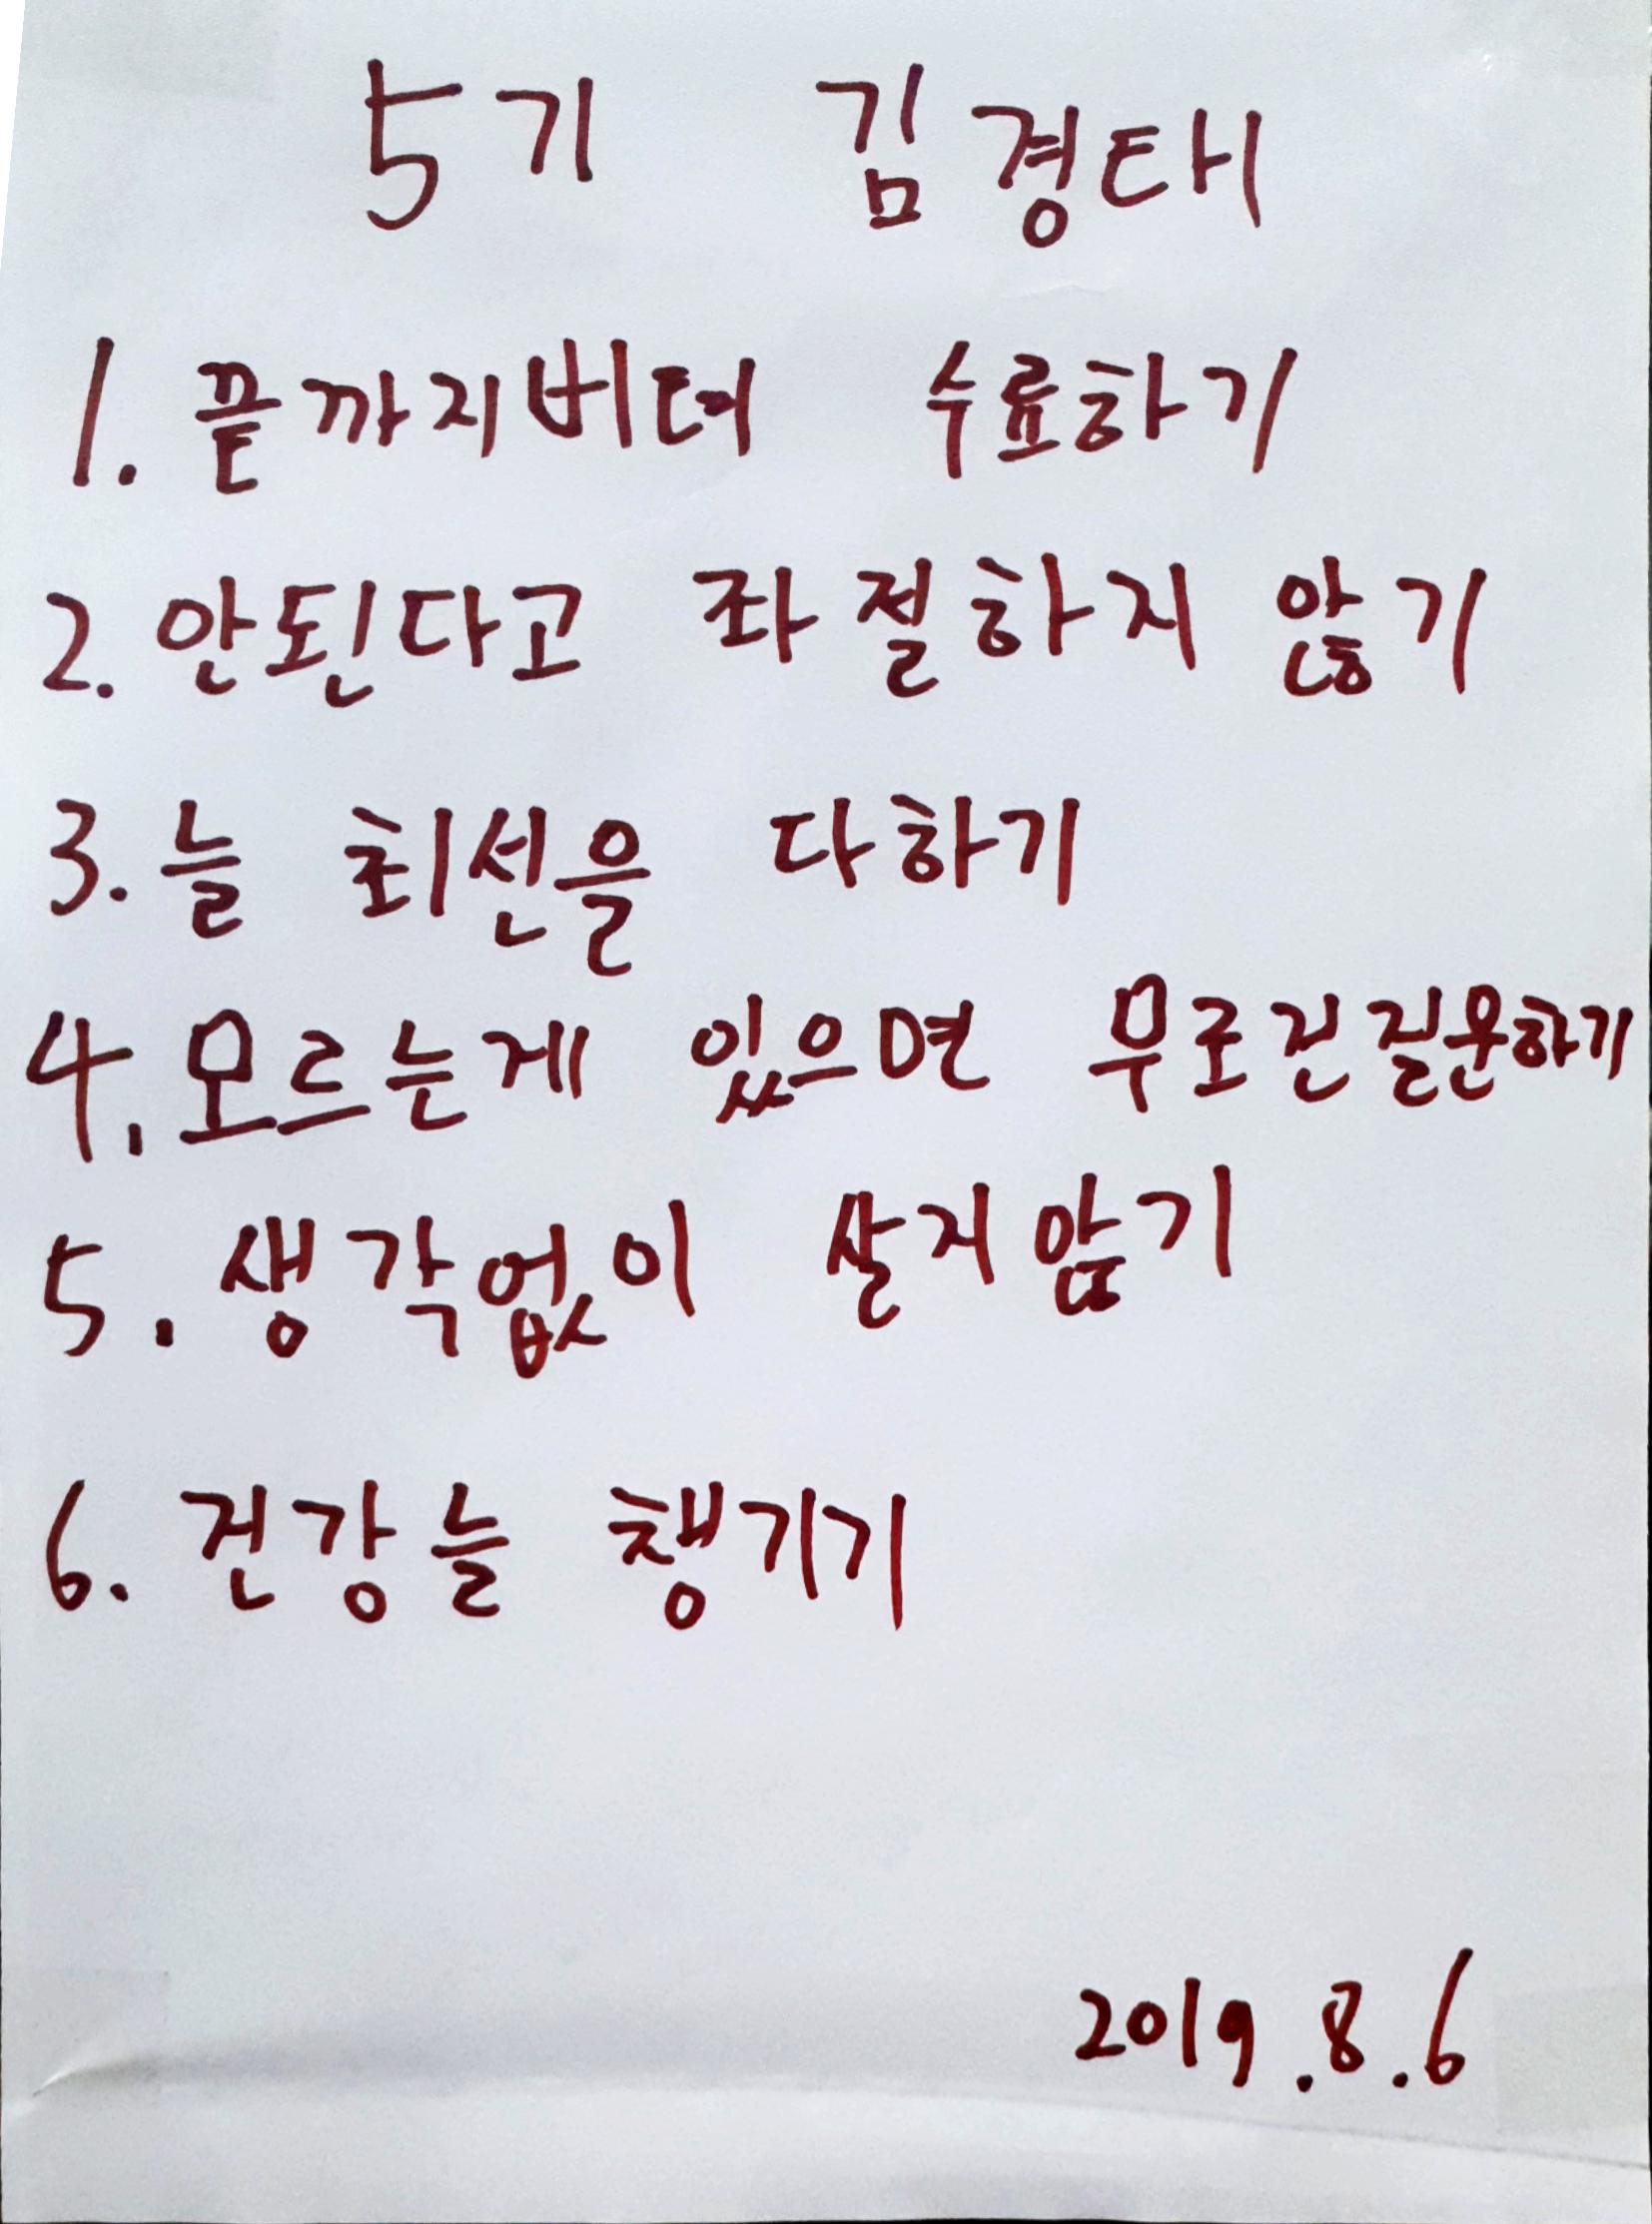 5기 김경태
1. 끝까지버텨 수료하기
2. 안된다고 좌절하지 않기
3. 늘 최선을 다하기
4. 모르는게 있으면 무조건질문하기
5. 생각없이 살지않기
6. 건강늘 챙기기
2019.8.6